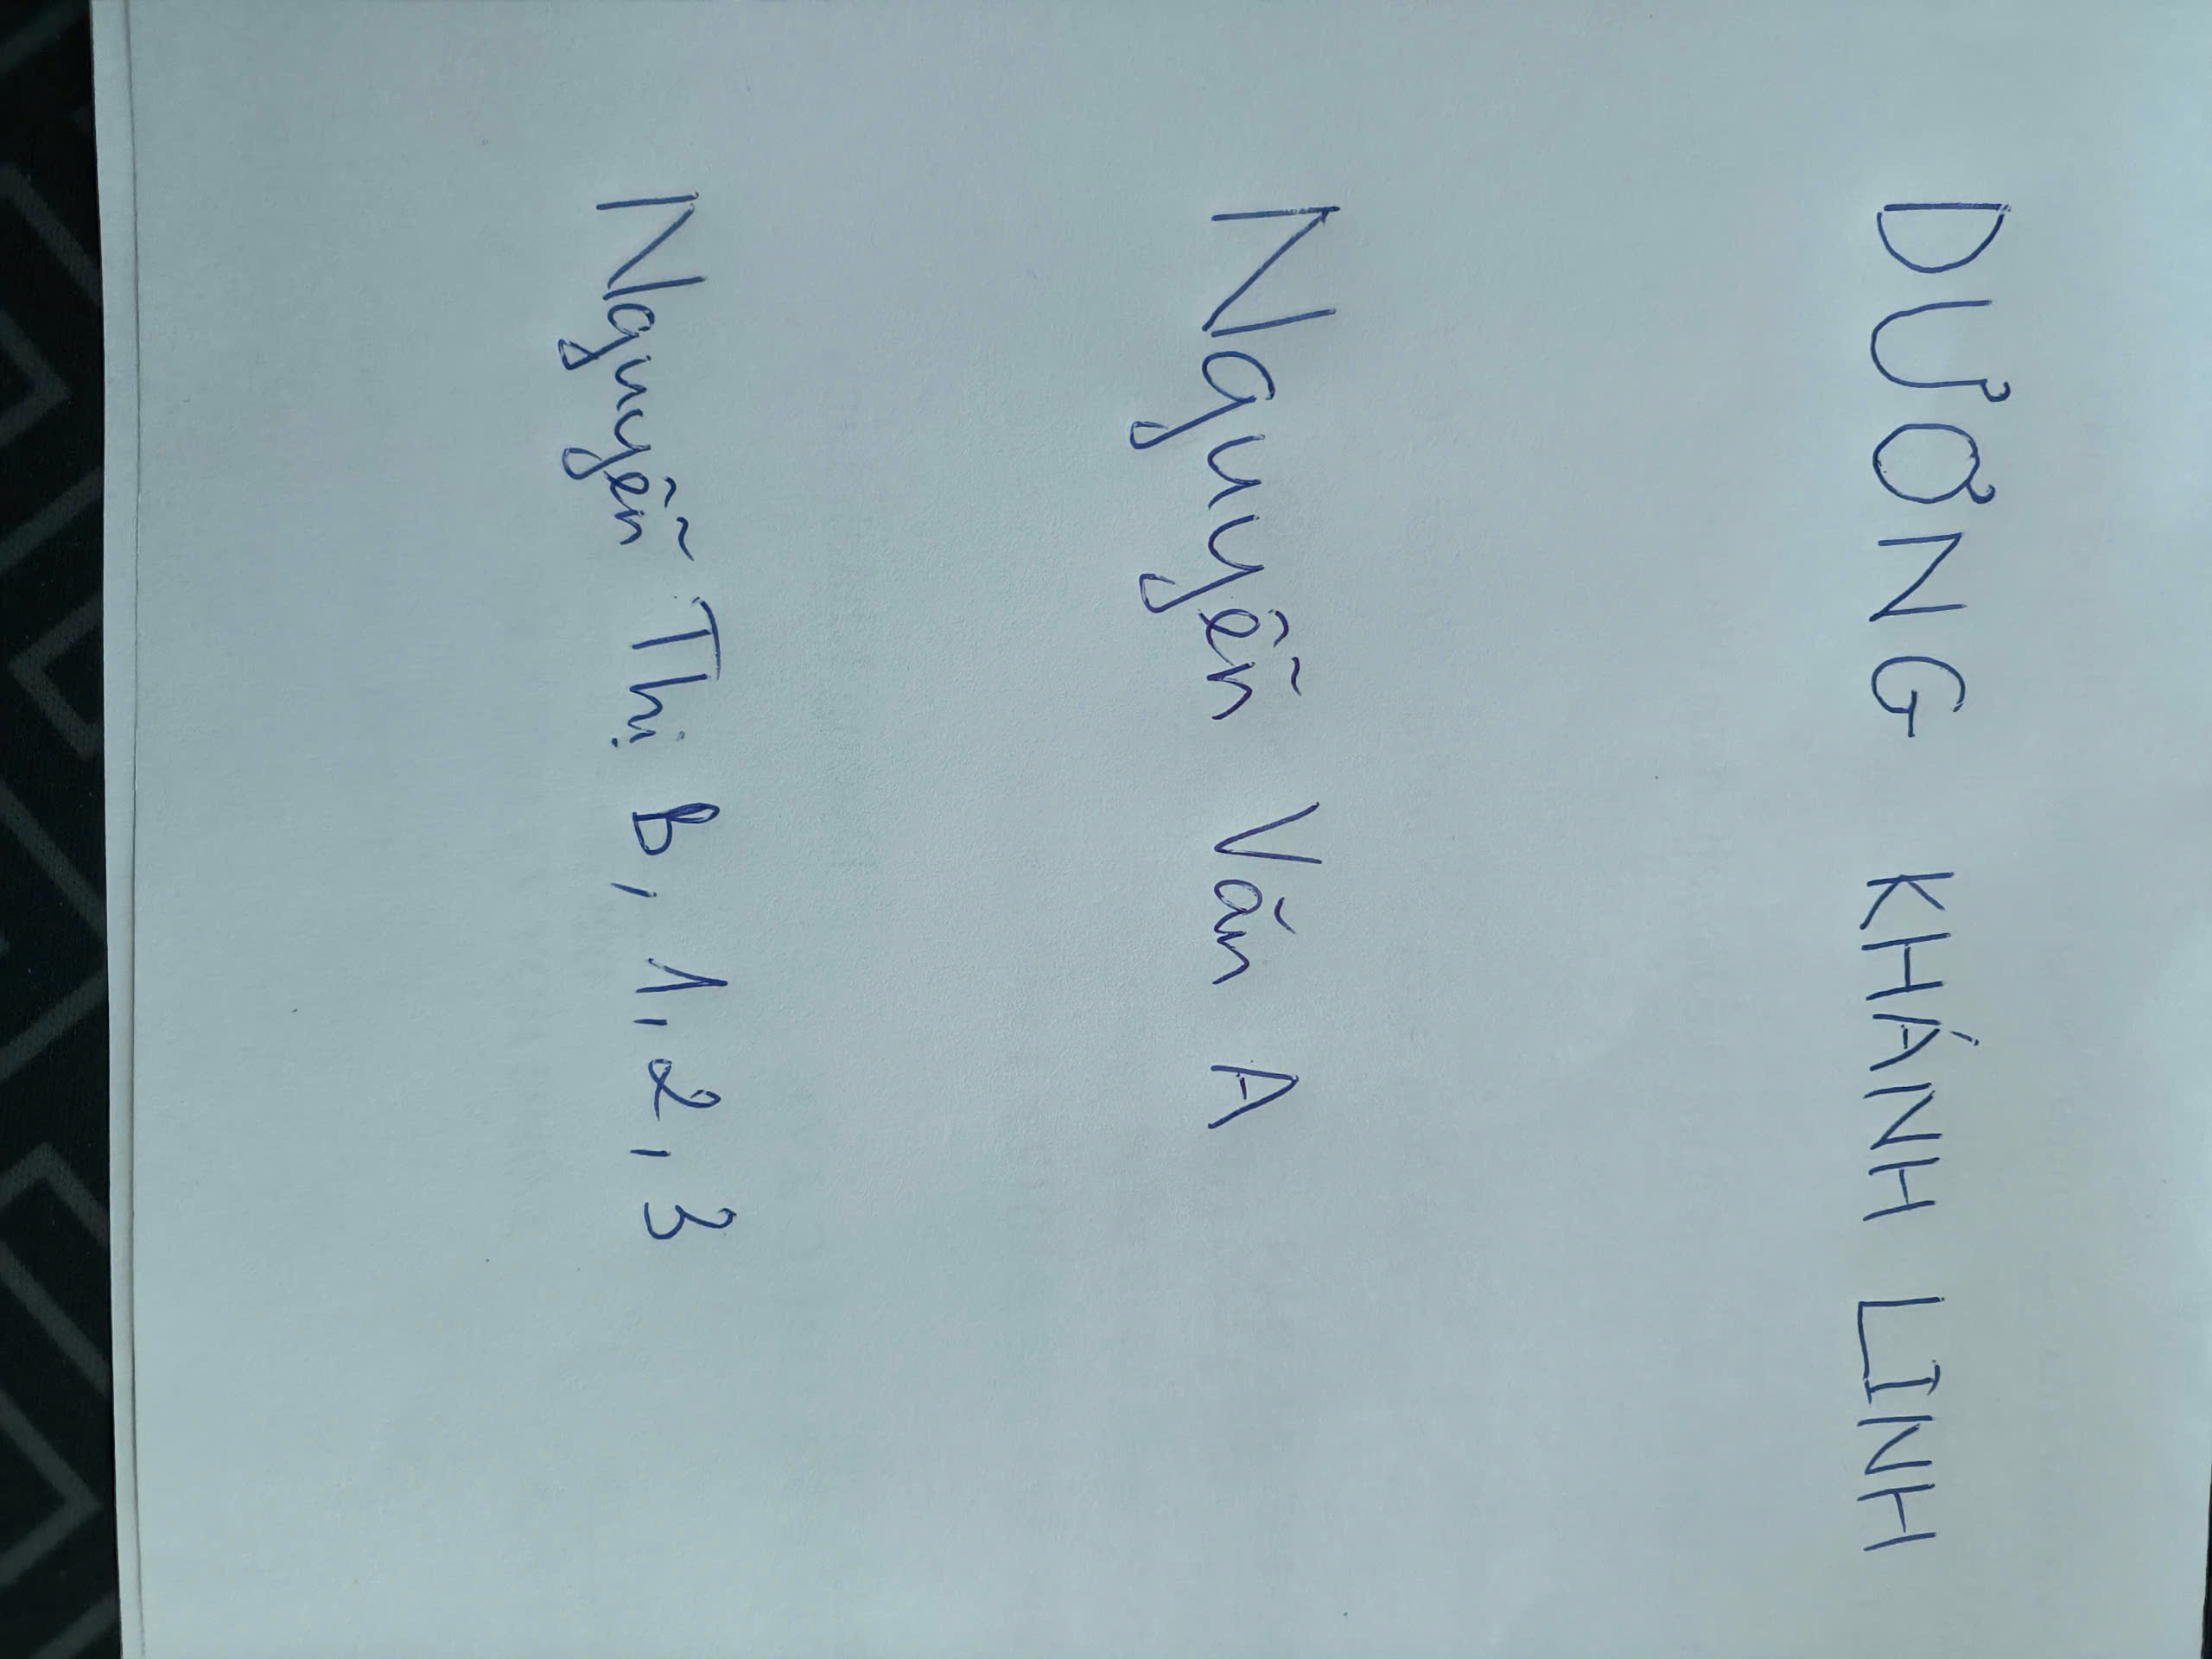 DƯƠNG KHÁNH LINH
Nguyễn Văn A
Nguyễn Thị B, 1, 2, 3